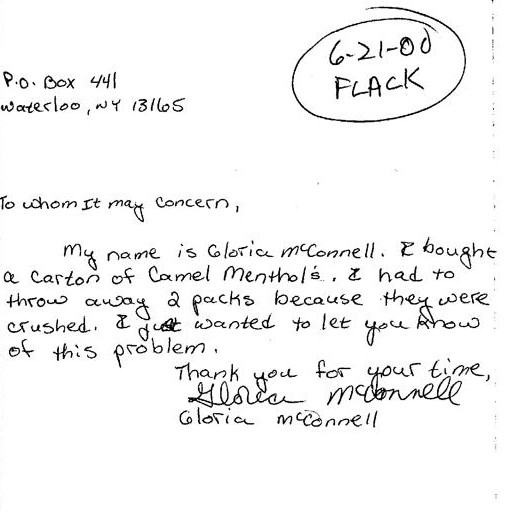 6-21-00
FLACK
P.O. Box 441
Waterloo, NY 13165
To whom It may concern,
My name is Gloria McConnell. I bought
a carton of Camel Menthol's. I had to
throw away 2 packs because they were
crushed. I just wanted to let you know
of this problem.
Thank you for your time,
Gloria McConnell
Gloria McConnell